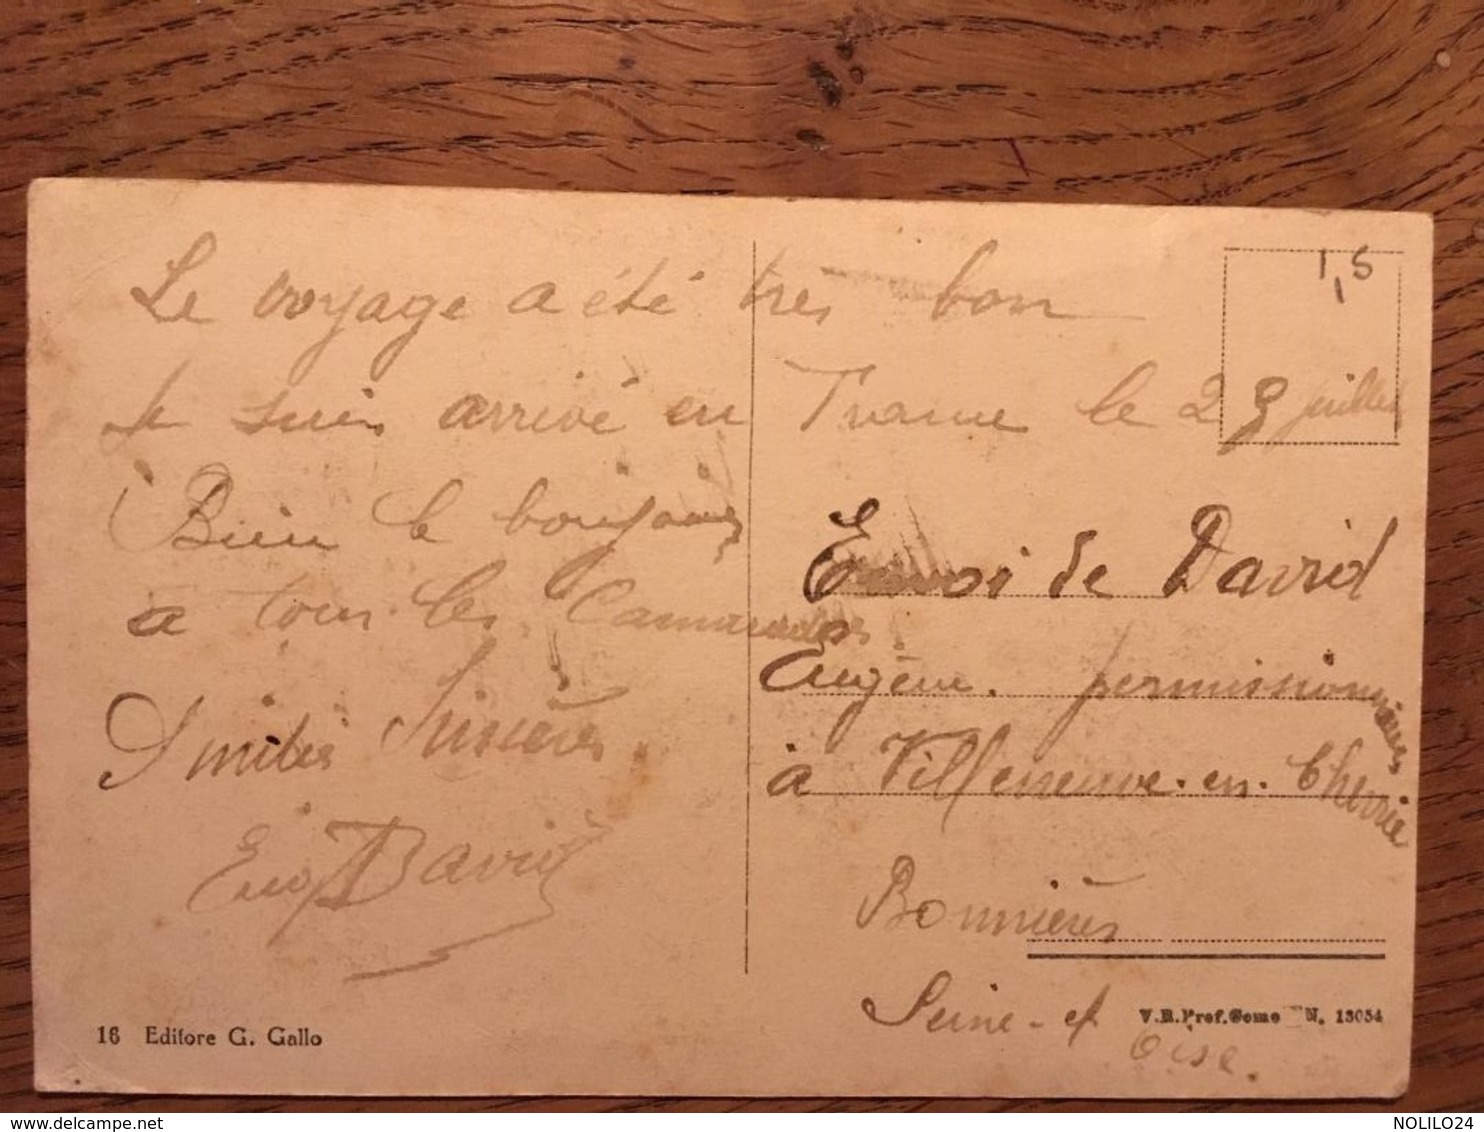 Le voyage a été tres bon
Je suis arrivé en France le 28 juillet
Bien le bonjour
a tous les Camarades
Amitiés Sincères
Eug David
1,5
Envoi de David
Eugène. permissionnaire
à Villeneuve-en-Cherrie
Bonnières
Seine-et
Oise.
16 Editore G. Gallo
V.R.Pref.Como N. 13054
NOLILO24